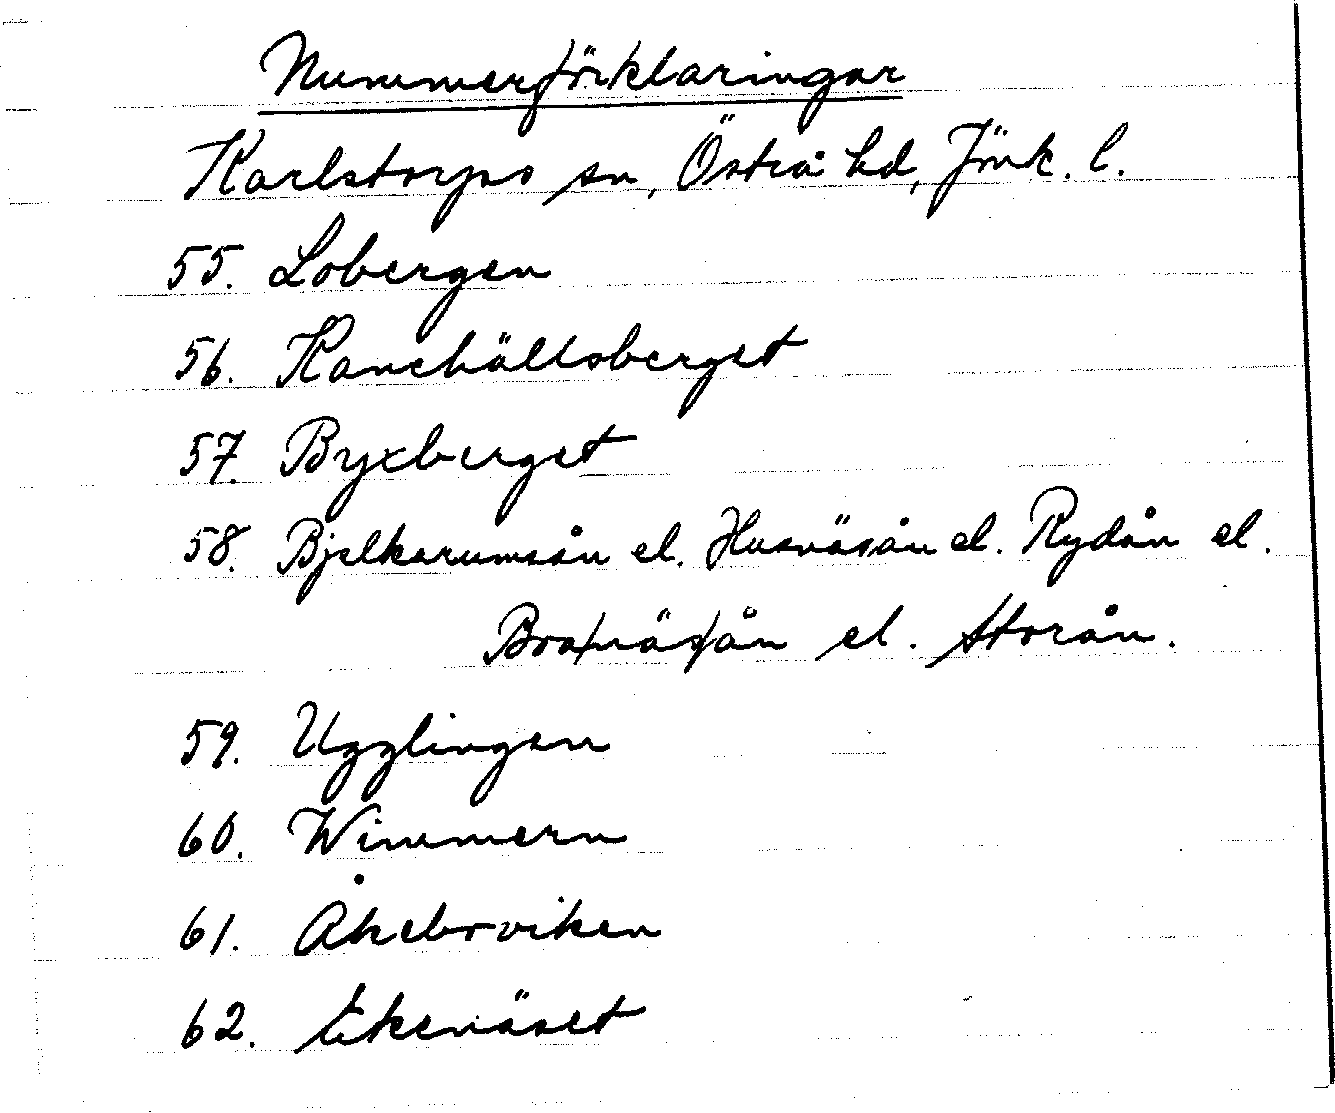 Nummerförklaringar
Karlstorps sn, Östra hd, Jönk. l.
55. Lobergen
56. Kanehällsberget
57. Byxberget
58. Bjelkarumsån el. Husnäsån el. Rydån el.
Brosnäsån el. Storån.
59. Ugglingen
60. Wimmern
61. Åkeboviken
62. Ekenäset